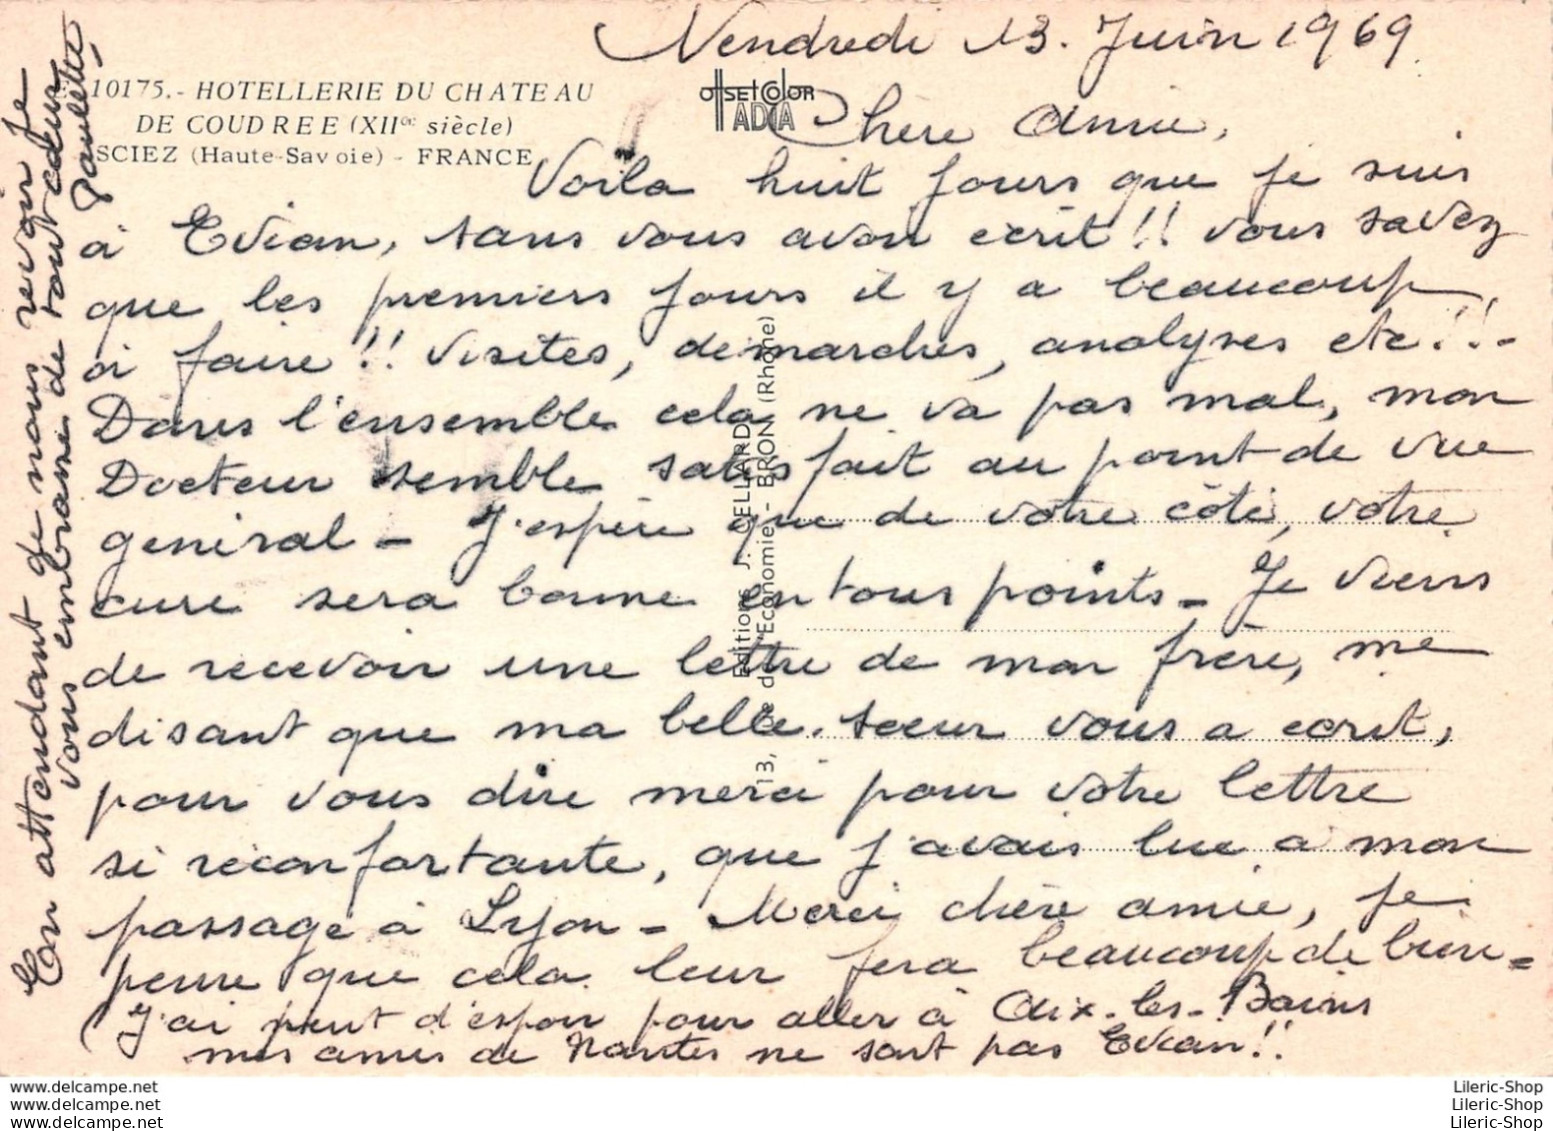 Vendredi 13. Juin 1969
10175.- HOTELLERIE DU CHATEAU
DE COUDREE (XIIe siècle)
SCIEZ (Haute-Savoie) - FRANCE
offset color
ADIA
Chère Amie,
Voila huit jours que je suis
à Evian, sans vous avoir ecrit!! vous savez
que les premiers jours il y a beaucoup
à faire!! Visites, demarches, analyses etc!!-
Dans l'ensemble cela ne va pas mal, mon
Docteur semble satisfait au point de vue
general - J'espère que de votre côté, votre
cure sera bonne en tous points - Je viens
de recevoir une lettre de mon frère, me
disant que ma belle-soeur vous a ecrit,
pour vous dire merci pour votre lettre
si réconfortante, que j'avais lue a mon
passage à Lyon - Merci chère amie, je
pense que cela leur fera beaucoup de bien =
J'ai peut d'espoir pour aller à Aix-les-Bains
mes amies de Nantes ne sont pas Evian!!
En attendant de nous revoir je
vous embrasse de tout coeur
Paulette
Editions J. CELLARD
13, de l'Economie - BRON (Rhône)
www.delcampe.net
Lileric-Shop
www.delcampe.net
Lileric-Shop
www.delcampe.net
Lileric-Shop